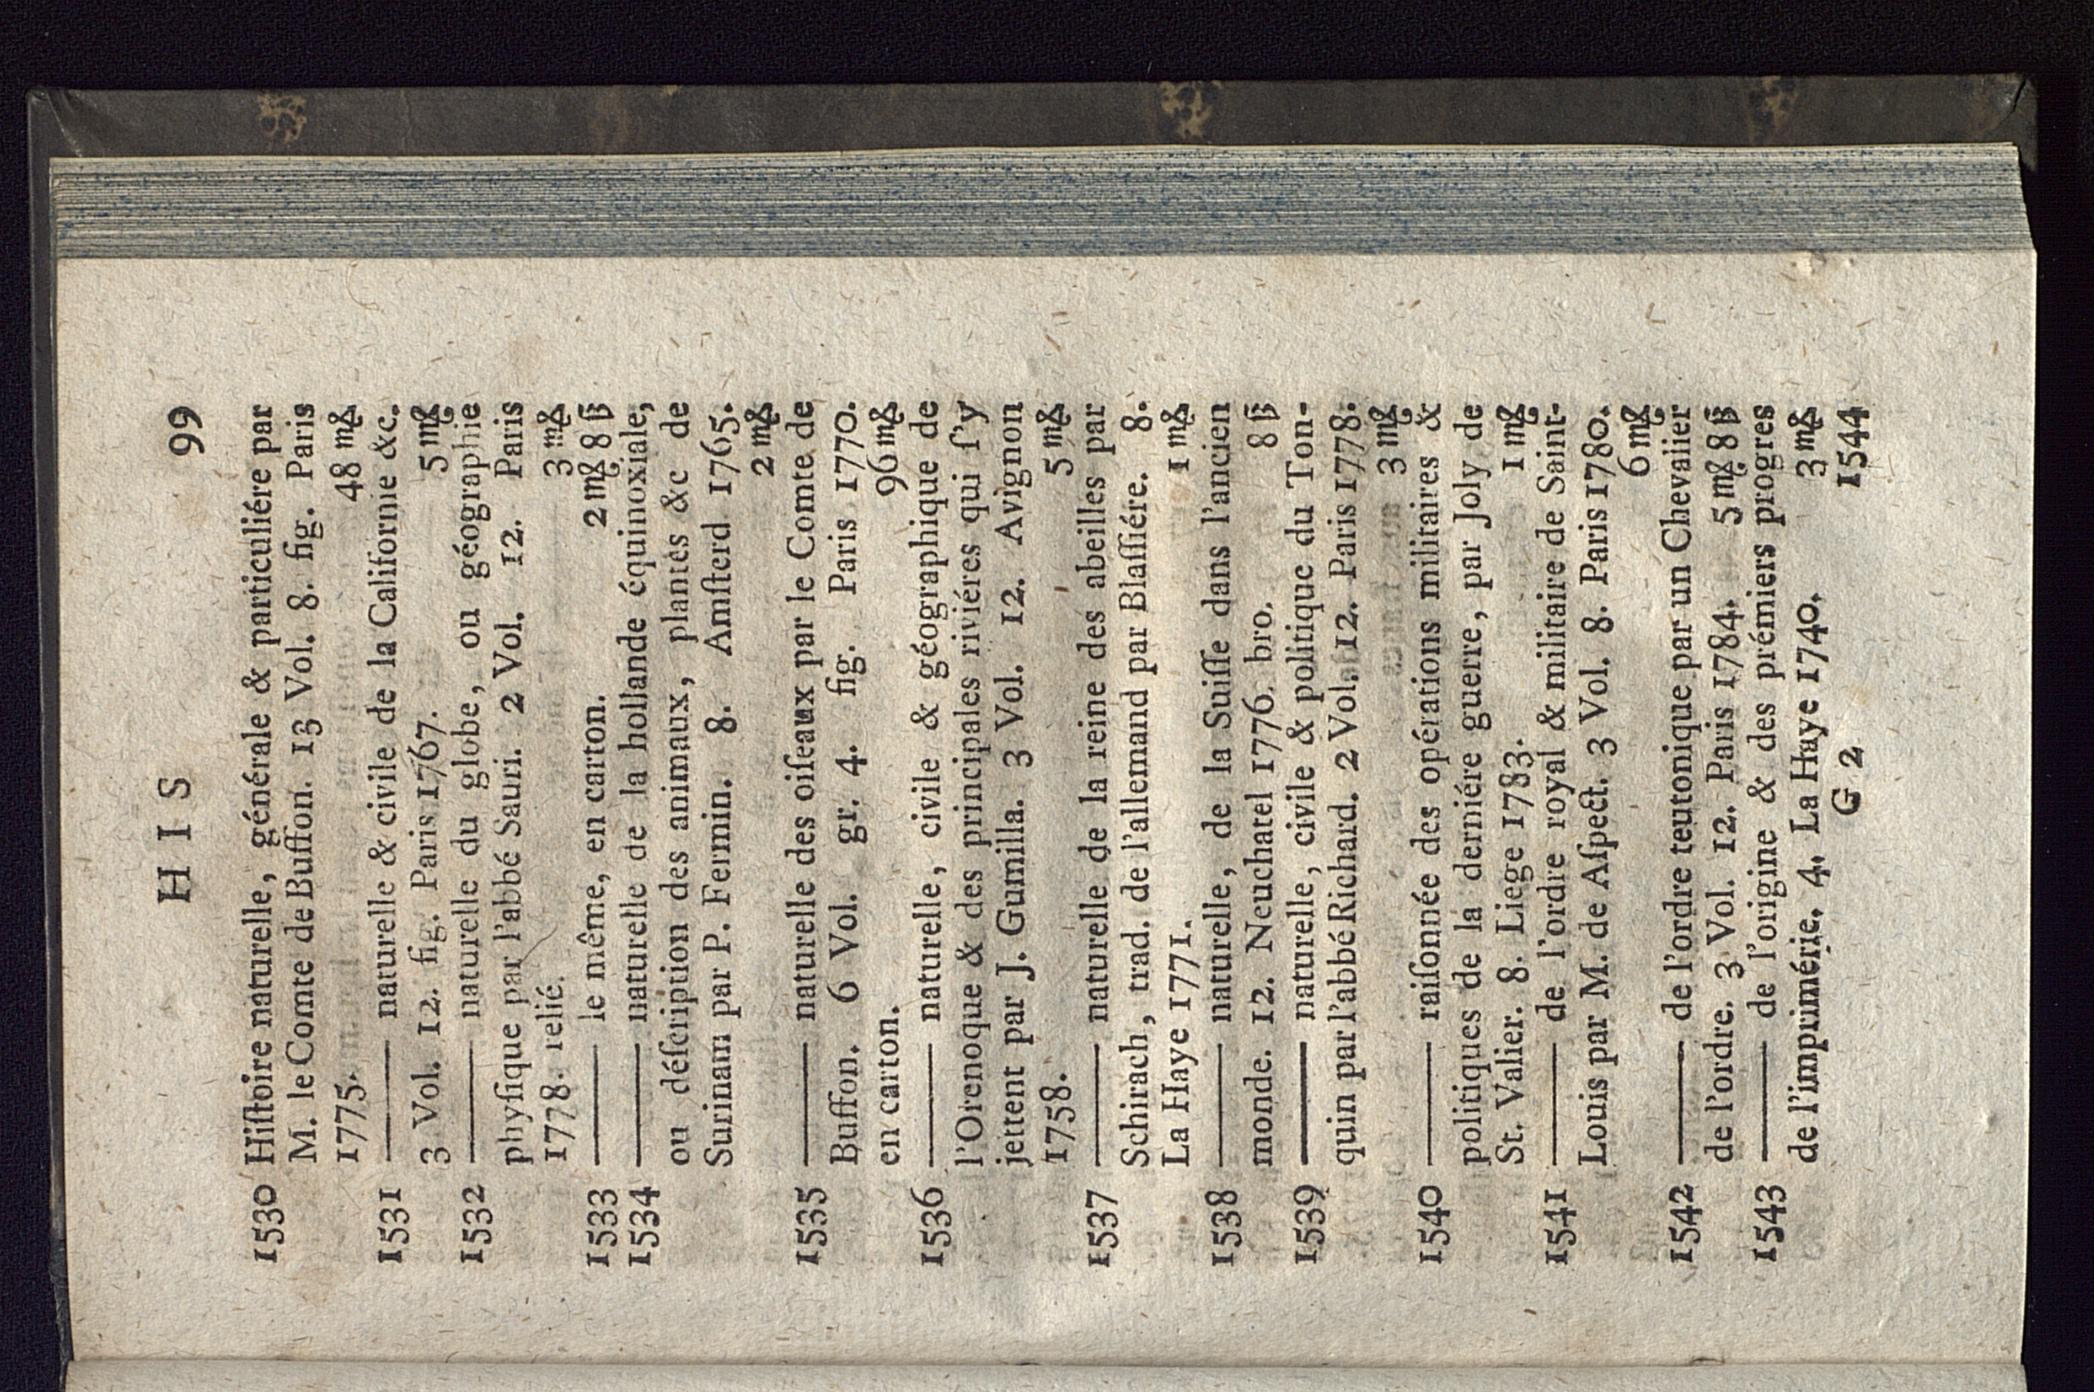 H I S 99
1530 Hiſtoire naturelle, générale & particuliére par
M. le Comte de Buffon. 13 Vol. 8. fig. Paris
1775. 48 m&
1531 —— naturelle & civile de la Californie &c.
3 Vol. 12. fig. Paris 1767. 5 m&
1532 —— naturelle du globe, ou géographie
phyſique par l'abbé Sauri. 2 Vol. 12. Paris
1778. relié. 3 m&
1533 —— le même, en carton. 2 m& 8 ß
1534 —— naturelle de la hollande équinoxiale,
ou déſcription des animaux, plantes &c de
Surinam par P. Fermin. 8. Amſterd 1765.
2 m&
1535 —— naturelle des oiſeaux par le Comte de
Buffon. 6 Vol. gr. 4. fig. Paris 1770.
en carton. 96 m&
1536 —— naturelle, civile & géographique de
l'Orenoque & des principales riviéres qui ſ'y
jettent par J. Gumilla. 3 Vol. 12. Avignon
1758. 5 m&
1537 —— naturelle de la reine des abeilles par
Schirach, trad. de l'allemand par Blaſſiére. 8.
La Haye 1771. 1 m&
1538 —— naturelle, de la Suiſſe dans l'ancien
monde. 12. Neuchatel 1776. bro. 8 ß
1539 —— naturelle, civile & politique du Ton-
quin par l'abbé Richard. 2 Vol. 12. Paris 1778.
3 m&
1540 —— raiſonnée des opérations militaires &
politiques de la derniére guerre, par Joly de
St. Valier. 8. Liege 1783. 1 m&
1541 —— de l'ordre royal & militaire de Saint-
Louis par M. de Aſpect. 3 Vol. 8. Paris 1780.
6 m&
1542 —— de l'ordre teutonique par un Chevalier
de l'ordre. 3 Vol. 12. Paris 1784. 5 m& 8 ß
1543 —— de l'origine & des prémiers progres
de l'imprimérie. 4. La Haye 1740. 3 m&
G 2 1544